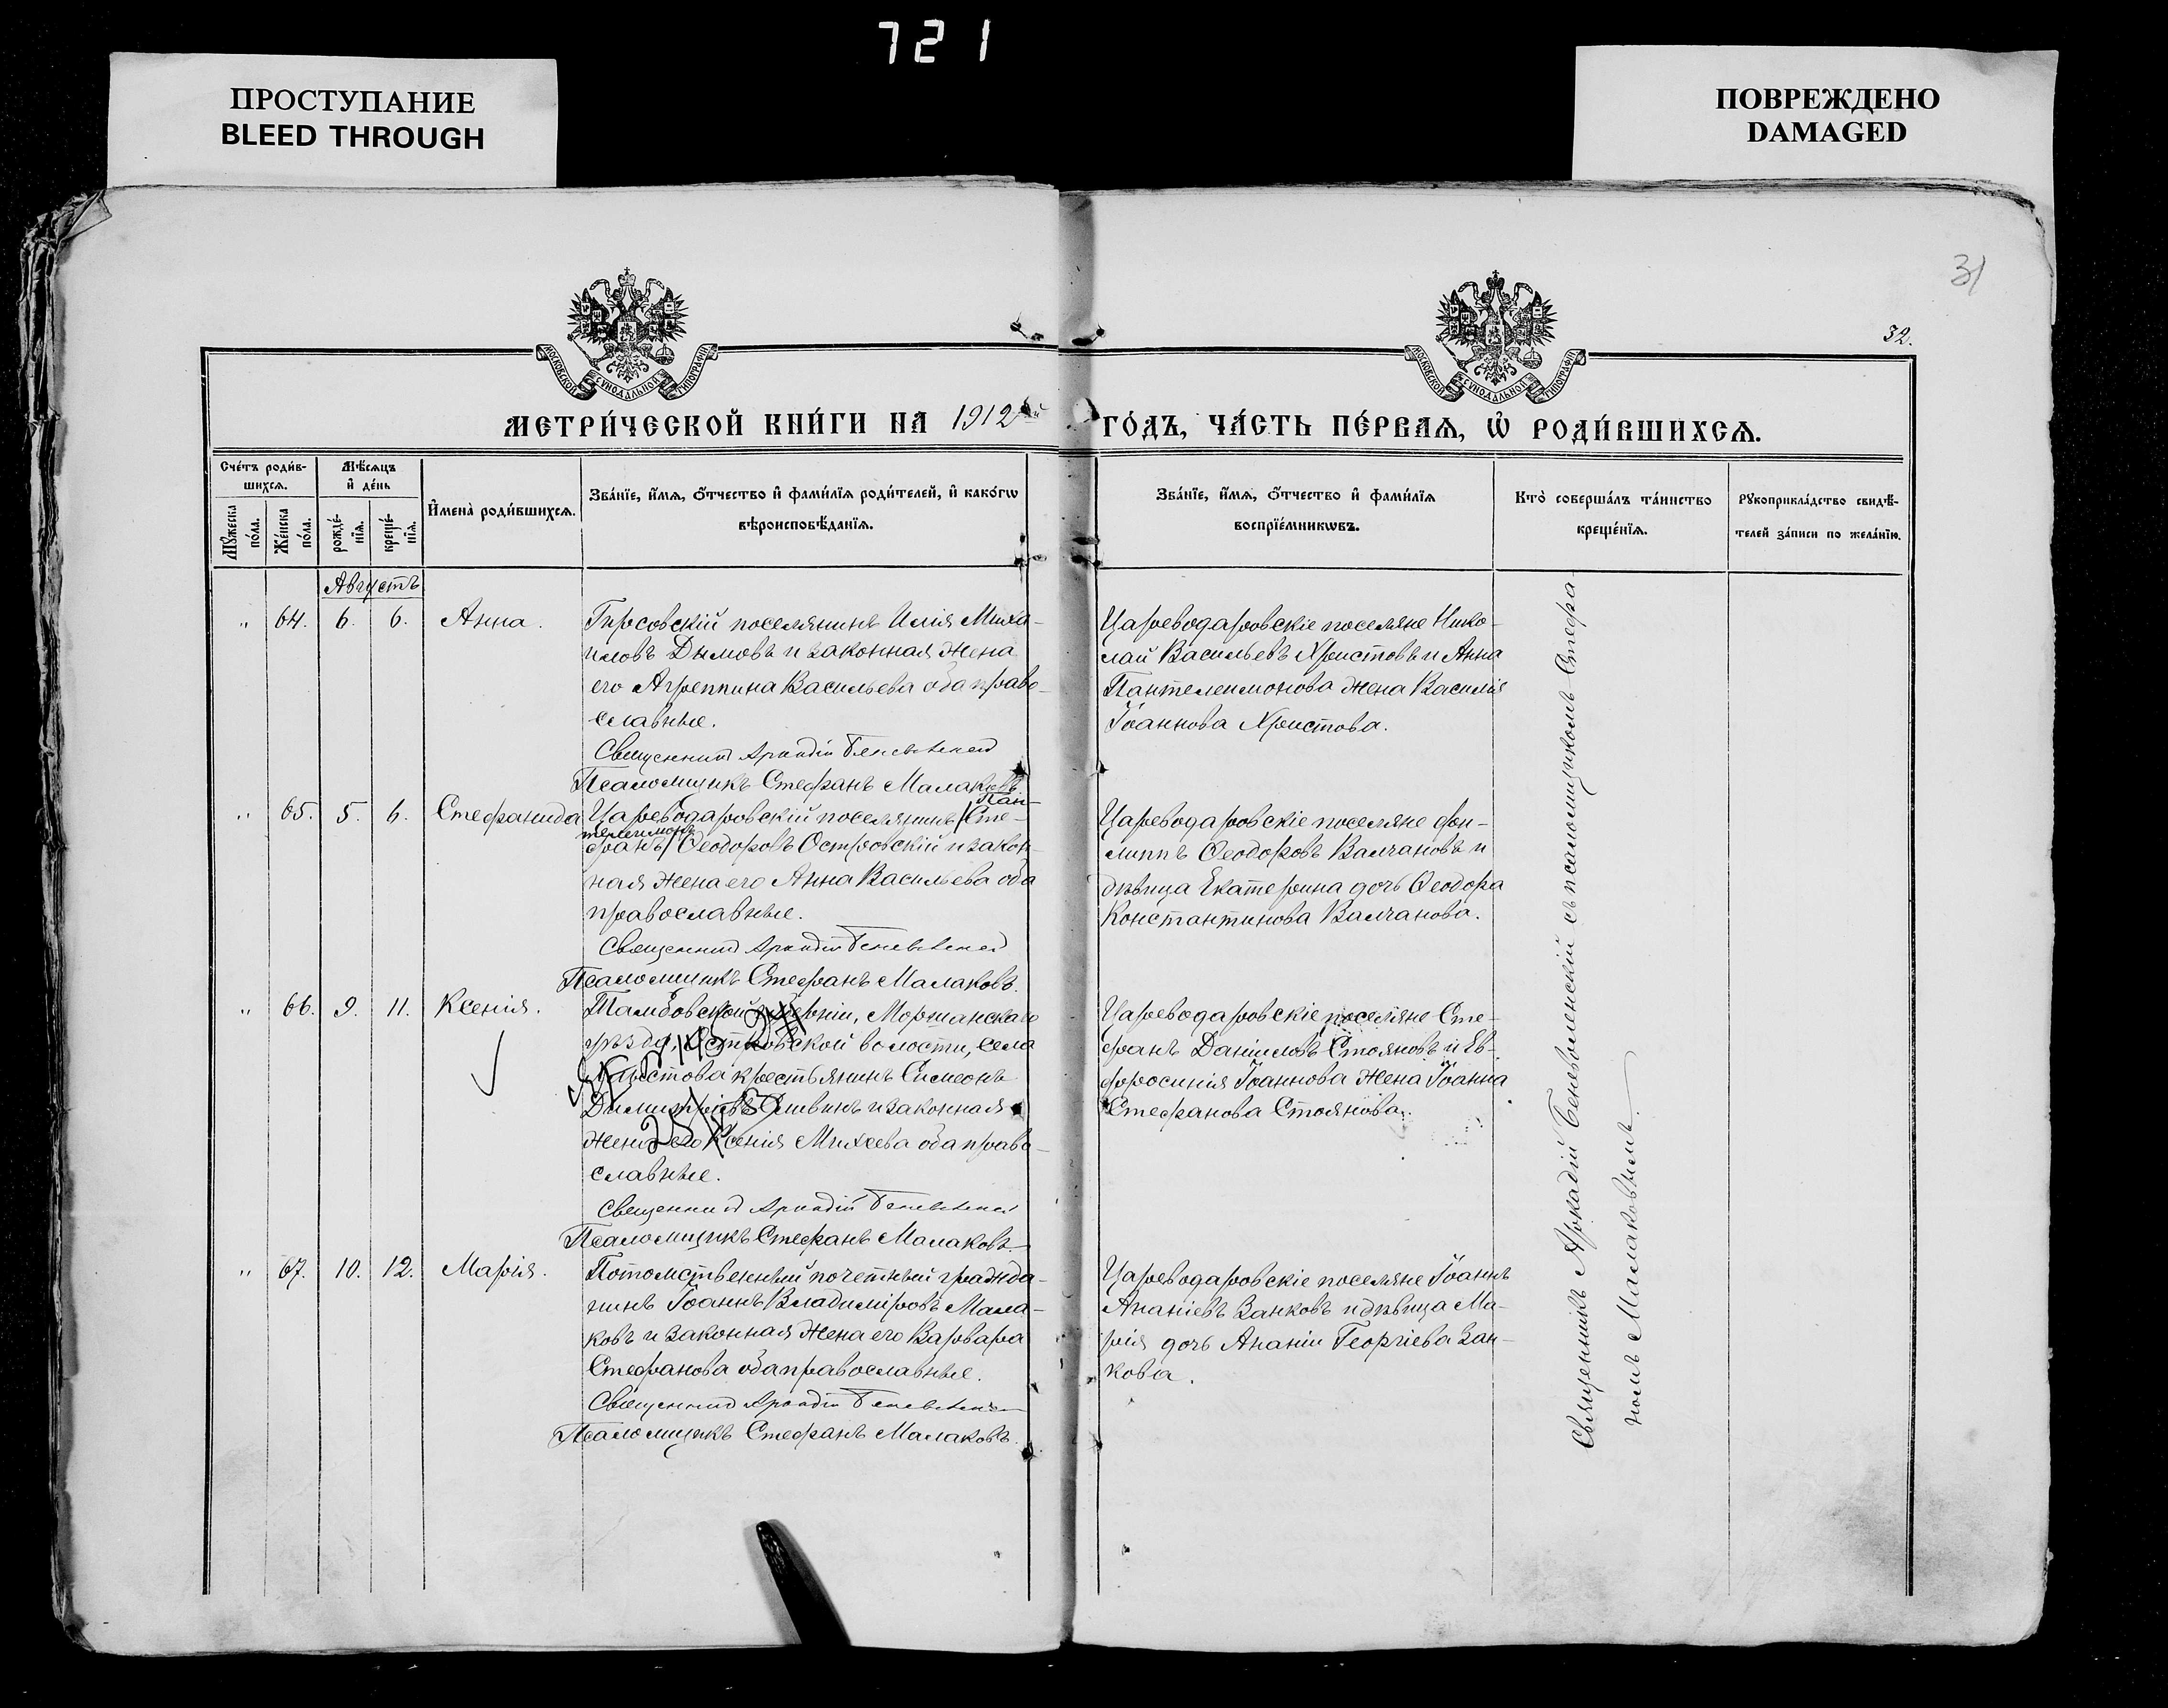 721
ПРОСТУПАНИЕ
BLEED THROUGH
ПОВРЕЖДЕНО
DAMAGED
31
32.
МОСКОВСКОЙ СУНОДАЛЬНОЙ ТИПОГРАФІИ
МОСКОВСКОЙ СУНОДАЛЬНОЙ ТИПОГРАФІИ
МЕТРИ́ЧЕСКОЙ КНИ́ГИ НА 1912 ГО́ДЪ, ЧА́СТЬ ПЕ́РВАѦ, Ѡ РОДИ́ВШИХСѦ.
Сче́тъ роди́в-
шихсѧ.
Мꙋ́жеска по́ла.
Же́нска по́ла.
Мѣ́сѧцъ
и҆ де́нь
рожде́-нїѧ.
креще́-нїѧ.
И҆мена̀ роди́вшихсѧ.
Зва́нїе, и҆́мѧ, ѻ҆́тчество и҆ фами́лїѧ роди́телей, и҆ како́гѡ
вѣроисповѣ́данїѧ.
Зва́нїе, и҆́мѧ, ѻ҆́тчество и҆ фами́лїѧ
воспрїе́мникѡвъ.
Кто̀ соверша́лъ та́инство
креще́нїѧ.
Рꙋкоприкла́дство свидѣ́-
телей за́писи по жела́нїю.
Августъ
" 64. 6. 6. Анна.
поселянинъ Илія Миха-
иловъ Дымовъ и законная жена
его Агреппина Васильева оба право-
славные.
Священникъ Аркадій Беневоленскій
Псаломщикъ Стефанъ Малаковъ.
Цареводаровскіе поселяне Нико-
лай Васильевъ Христовъ и Анна
Пантелеимонова жена Василія
Іоаннова Христова.
" 65. 5. 6. Стефанида
Пан-
Цареводаровскій поселянинъ /Сте-
телеимонъ
фанъ/ Ѳеодоровъ Островскій и закон-
ная жена его Анна Васильева оба
православные.
Священникъ Аркадій Беневоленскій
Псаломщикъ Стефанъ Малаковъ.
Цареводаровскіе поселяне Фи-
липпъ Ѳеодоровъ Валчановъ и
дѣвица Екатерина дочь Ѳеодора
Константинова Валчанова.
" 66. 9. 11. Ксенія.
Тамбовской губерніи, Моршанскаго
уѣзда, Островской волости, села
крестьянинъ Симеонъ
Димитріевъ и законная
жена его Ксенія Михеева оба право-
славные.
Священникъ Аркадій Беневоленскій
Псаломщикъ Стефанъ Малаковъ.
Цареводаровскіе поселяне Сте-
фанъ Даніиловъ Стояновъ и Ев-
фросинія Іоаннова жена Іоанна
Стефанова Стоянова.
" 67. 10. 12. Марія.
Потомственный почетный гражда-
нинъ Іоаннъ Владиміровъ Мала-
ковъ и законная жена его Варвара
Стефанова оба православные.
Священникъ Аркадій Беневоленскій
Псаломщикъ Стефанъ Малаковъ.
Цареводаровскіе поселяне Іоаннъ
Ананіевъ Занковъ и дѣвица Ма-
рія дочь Ананіи Георгіева Зан-
кова.
Священникъ Аркадій Беневоленскій съ псаломщикомъ Стефа-
номъ Малаковымъ.